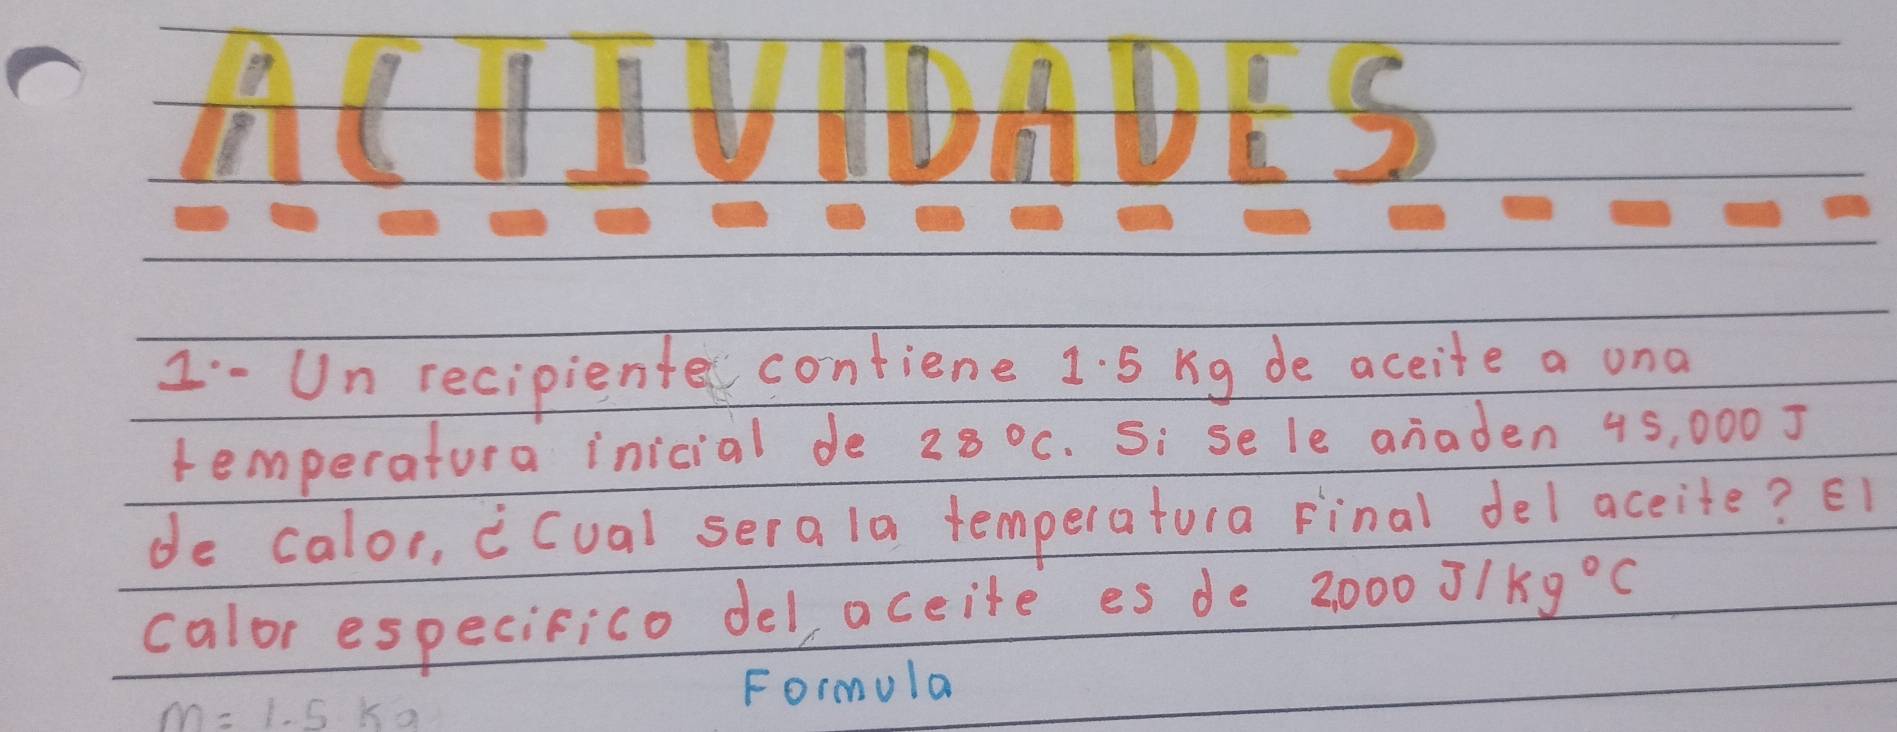 ACTIVIDADES
1.- Un recipiente contiene 1.5 Kg de aceite a una
temperatura inicial de 28 °C. Si se le añaden 45,000 J
de calor, ¿Cual sera la temperatura Final del aceite? El
calor especifico del aceite es de 2,000 J/Kg °C
Formula
m = 1.5 Kg